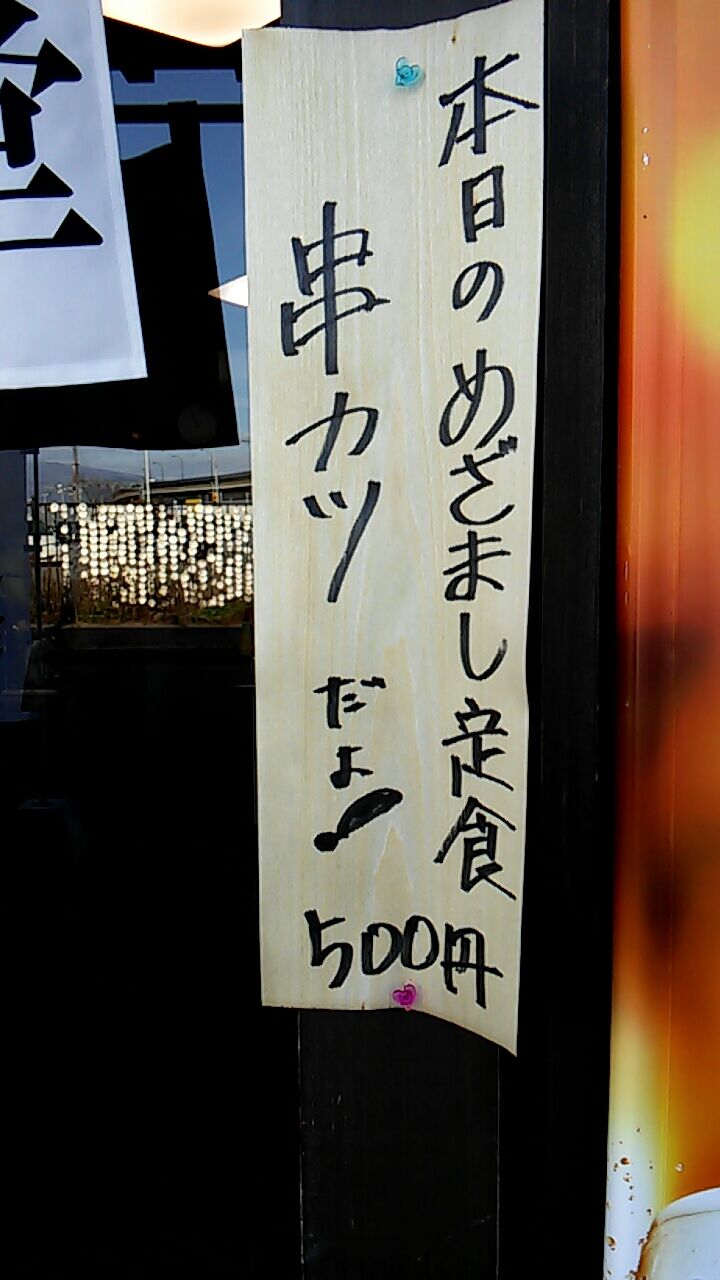 本日のめざまし定食
串カツ だよ!
500円